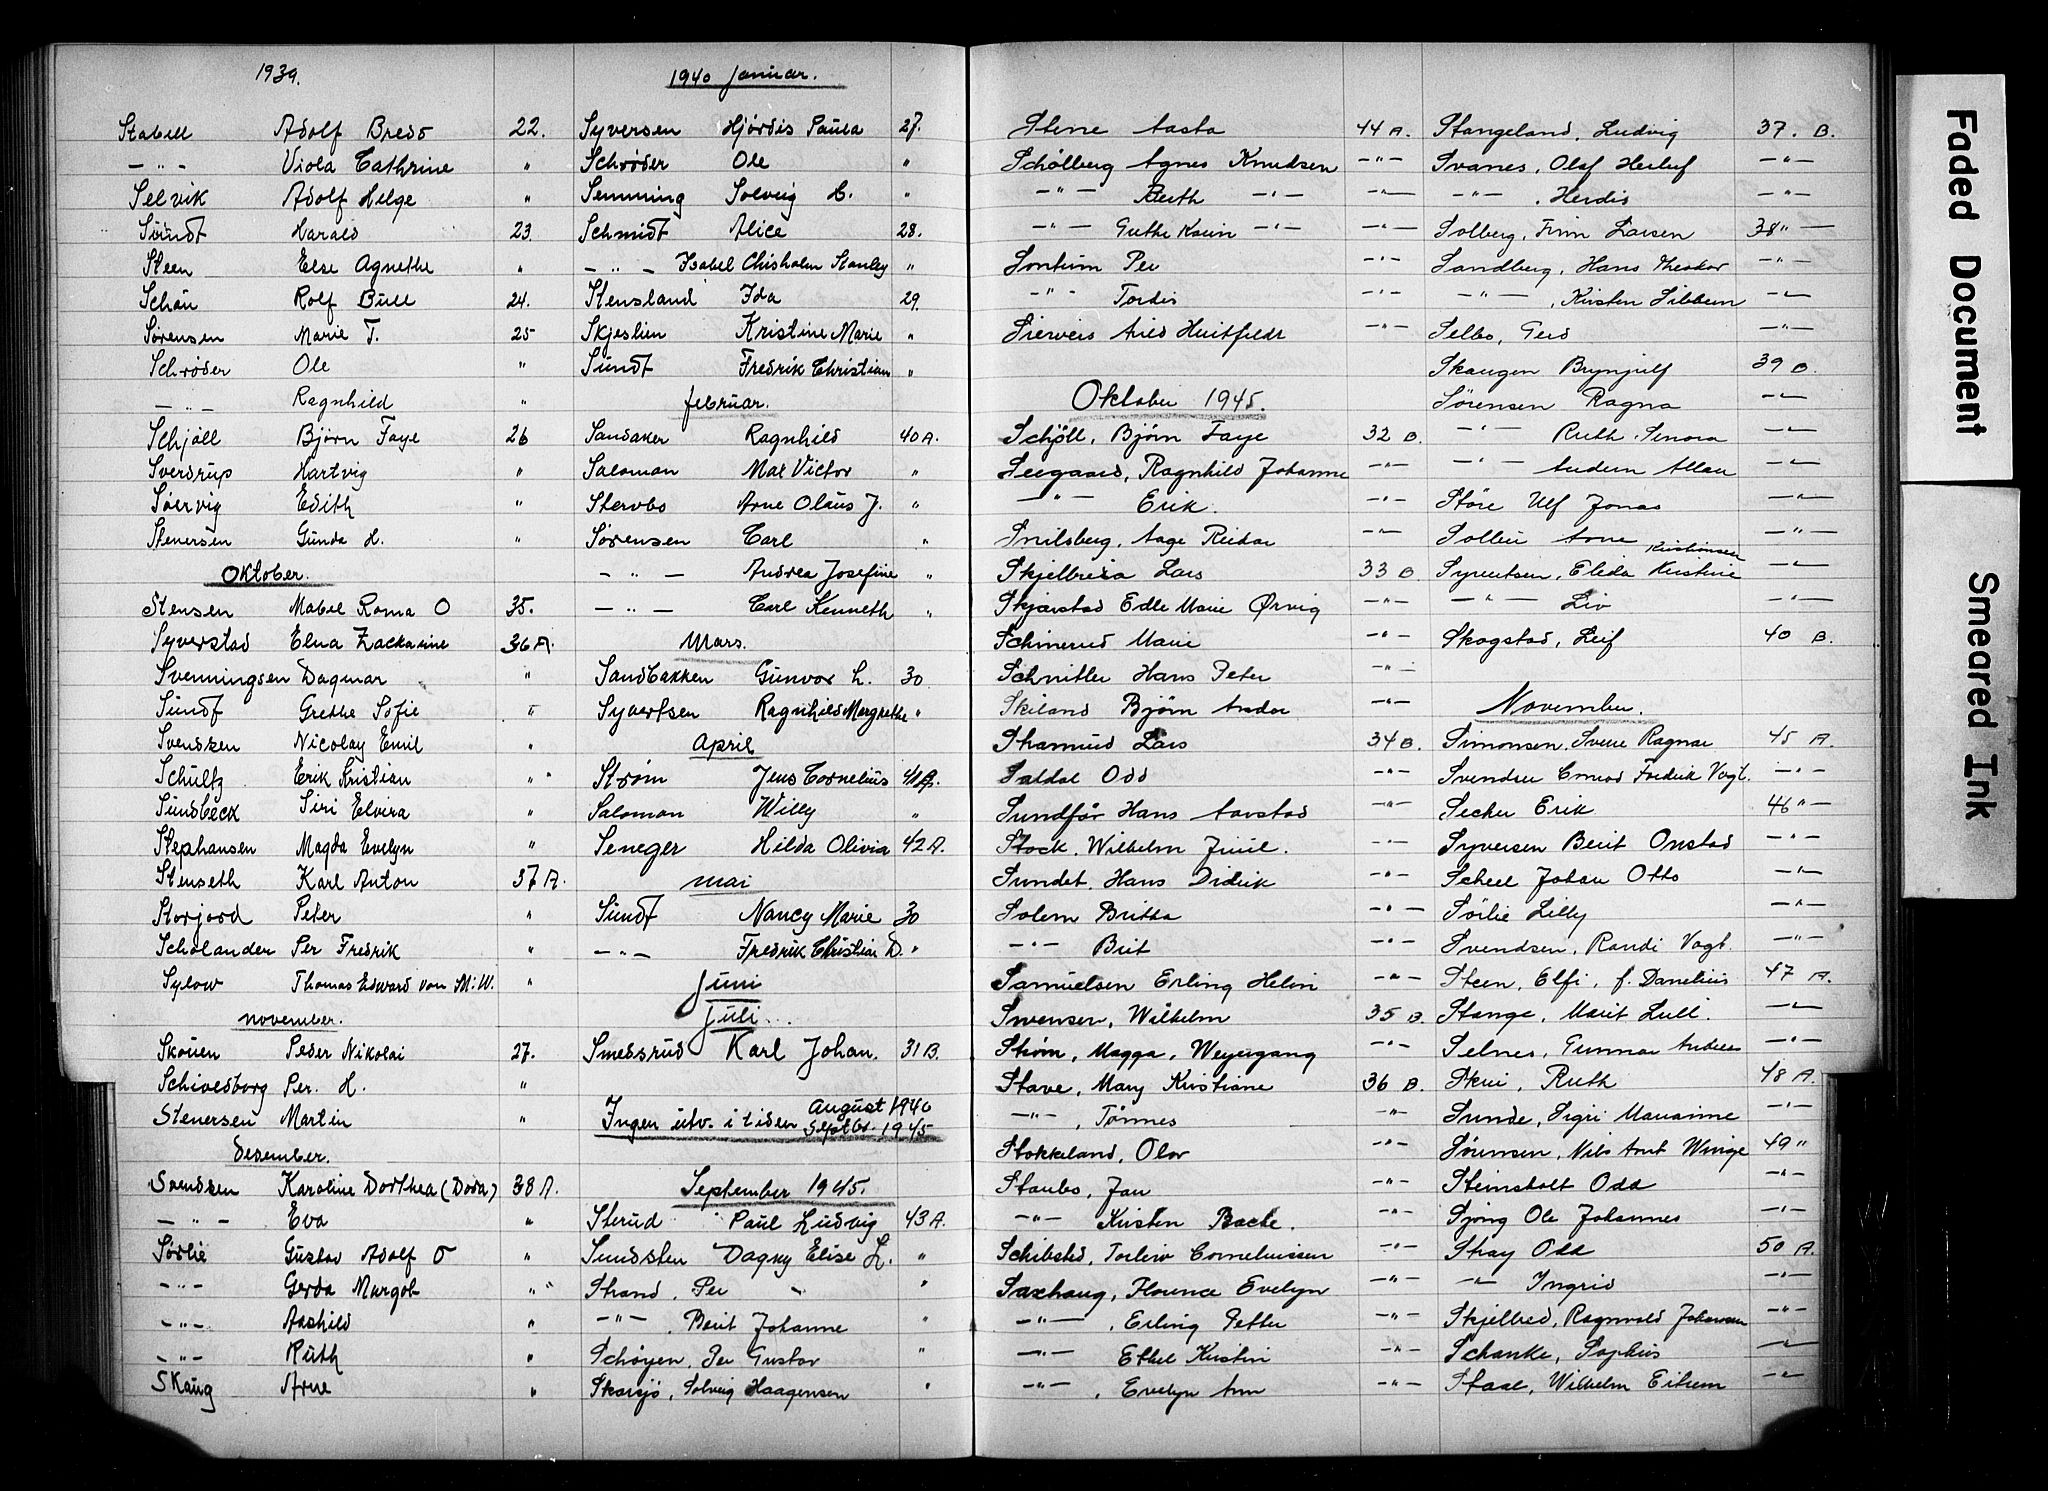 1939.
Stabell Adolf Bredo 22.
— " — Viola Cathrine "
Selvik Adolf Helge "
Sundt Harald 23.
Steen Else Agnethe "
Schøn Rolf Bull 24.
Sørensen Marie T. 25
Schrøder Ole "
— " — Ragnhild "
Schjøll Bjørn Faye 26
Sverdrup Hartvig "
Søervig Edith "
Stenersen Gunda H. "
Oktober.
Stensen Mabel Roma O 35.
Syverstad Elna Zackarine 36 A.
Svenningsen Dagmar "
Sundt Grethe Sofie "
Svendsen Nicolay Emil "
Schultz Erik Kristian "
Sundbeck Siri Elvira "
Stephansen Magda Evelyn "
Stenseth Karl Anton 37 A.
Storjord Peter "
Scholander Per Fredrik "
Sylow Thomas Edward von M.W. "
november.
Skouen Peder Nikolai 27.
Schivesborg Per. H. "
Stenersen Martin "
Desember.
Svendsen Karoline Dorthea (Doda) 38 A.
— " — Eva "
Sørlie Gustav Adolf O "
— " — Gerda Margot "
— " — Aashild "
— " — Ruth "
Skaug Arne "
1940 januar.
Syversen Hjørdis Paula 27.
Schrøder Ole "
Semming Solveig C. "
Schmidt Alice 28.
— " — Isabel Chisholm Stanley "
Stensland Ida 29.
Skjeslien Kristine Marie "
Sundt Fredrik Christian "
februar.
Sandaker Ragnhild 40 A.
Salomon Max Victor "
Stervbo Arne Olaus J. "
Sørensen Carl "
— " — Andrea Josefine "
— " — Carl Kenneth "
Mars.
Sandbakken Gunvor L. 30
Syvertsen Ragnhild Margrethe "
April
Strøm Jens Cornelius 41 A.
Salomon Willy "
Seneger Hilda Olivia 42 A.
mai
Sundt Nancy Marie 30
— " — Fredrik Christian D. "
Juni
Juli
Smedsrud Karl Johan. 31 B.
Ingen utv. i tiden August 1940
Septbr. 1945
September 1945.
Sterud Paul Ludvig 43 A.
Sundsten Dagny Elise L. "
Strand, Per "
— " — , Berit Johanne "
Schøyen, Per Gustav "
Skarsjø, Solveig Haagensen "
Stene Aasta 44 A.
Schølberg Agnes Knudsen — " —
— " — Reith — " — — " —
— " — Guthe Karin — " — — " —
Sontum Per — " —
— " — Tordis — " —
Siewers Arild Huitfeldt — " —
Oktober 1945.
Schjöll, Bjørn Faye 32 B.
Seegaard, Ragnhild Johanne — " —
— " — Erik. — " —
Snilsberg, Aage Reidar — " —
Skjelbreia Lars 33 B
Skjærstad Edle Marie Ørvig — " —
Schinerud Marie — " —
Schnitler Hans Peter — " —
Skiland Bjørn Andor — " —
Stramrud Lars 34 B.
Saldal Odd — " —
Sundför Hans Aarstad — " —
Stock, Wilhelm Juul. — " —
Sundet, Hans Didrik — " —
Solem Britta — " —
— " — Brit — " —
Samuelsen Erling Helin — " —
Swensen, Wilhelm 35 B.
Strøm, Magga, Weyergang — " —
Stave, Mary Kristiane 36 B
— " — , Tønnes "
Stokkeland, Olav — " —
Staubo, Jan — " —
— " — Kirsten Bache. — " —
Schibsted, Torleiv Corneliussen — " —
Saxhaug, Florence Evelyn — " —
— " — , Erling Petter — " —
— " — Ethel Kirstin — " —
— " — , Evelyn Ann — " —
Stangeland, Ludvig 37. B.
Svanes, Olaf Herluf — " —
— " — , Herdis — " —
Solberg, Finn Larsen 38 " —
Sandberg, Hans Theodor — " —
— " — , Kirsten Sibbern — " —
Selbo, Gerd — " —
Skaugen Brynjulf 39 B.
Sørensen Ragna — " —
— " — Ruth Senora — " —
— " — Andern Allan — " —
Störe Ulf Jonas — " —
Sollen Arne — " —
Syvertsen, Elida Kirstine Kristiansen — " —
— " — Liv — " —
Skogstad, Leif 40 B.
November.
Simonsen, Sverre Ragnar 45 A.
Svendsen Conrad Fredrik Vogt. — " —
Secher Erik 46 " —
Syversen Berit Onstad — " —
Scheel Johan Otto — " —
Sörlie Lilly — " —
Svendsen, Randi Vogt — " —
Steen, Elfi, f. Danelius 47 A.
Stange, Marit Lull. — " —
Selnes, Gunnar Andreas — " —
Skui, Ruth 48 A.
Sunde, Sigri Marianne — " —
Sørensen, Nils Arnt Winge 49 "
Steinsholt Odd — " —
Sjöng Ole Johannes — " —
Stray Odd 50 A.
— " — Ingrid — " —
Skjelbred, Ragnvald Johansen — " —
Schanke, Sophus — " —
Staal, Wilhelm Eitrem — " —
Faded Document
Smeared Ink